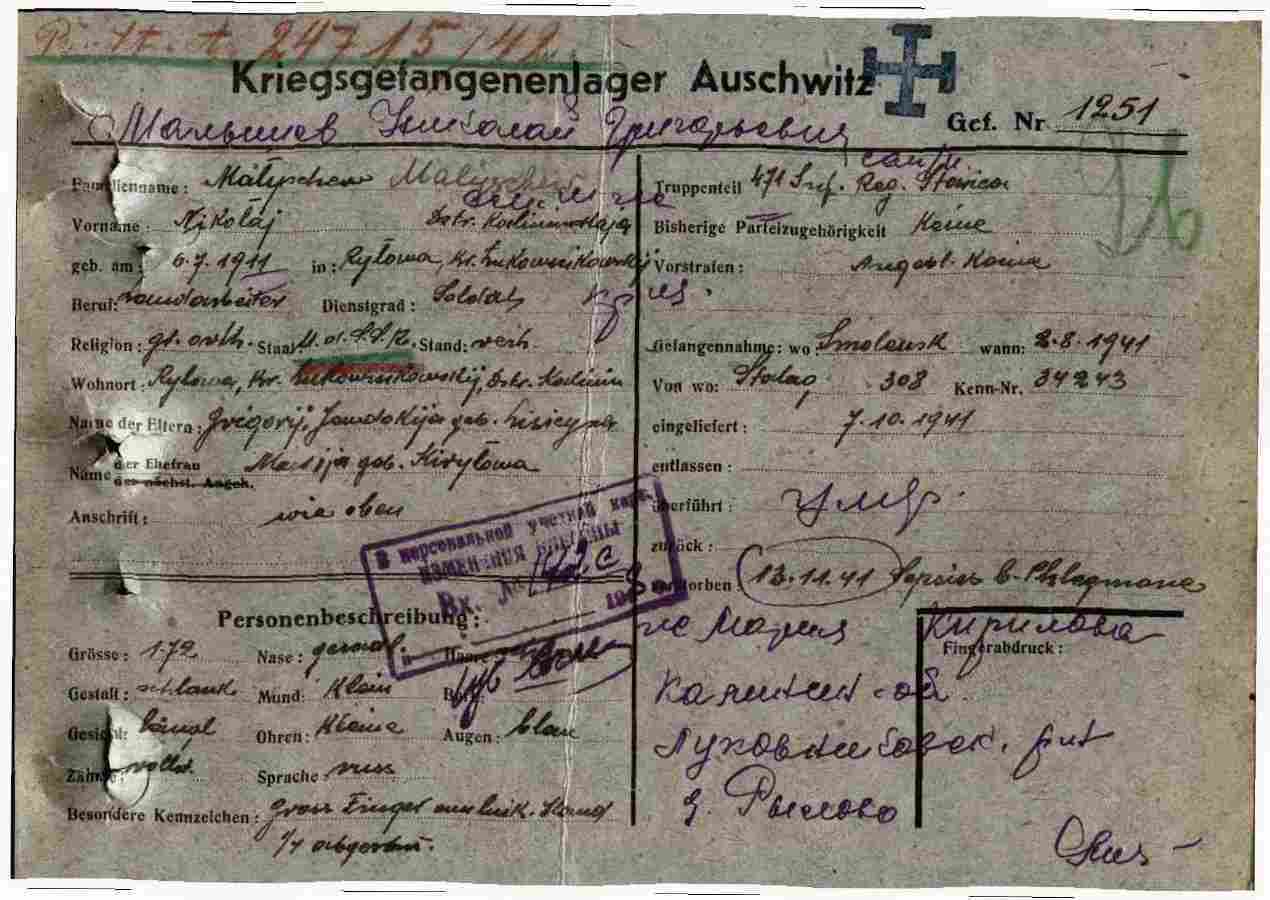 R. St. A. 24715/42
Kriegsgefangenenlager Auschwitz
Малышев Николай Григорьевич
Gef. Nr 1251
Familienname: Malyschew Malyschew
Vorname: Nikolaj
geb. am: 6.7.1911 in: Rylowa, Kr. Lukownikowskij
Distr. Kalininskaja
Beruf: Landarbeiter Dienstgrad: Soldat
Religion: gr. orth. Staat: U.d.S.S.R. Stand: verh.
Wohnort: Rylowa, Kr. Lukownikowskij, Dstr. Kalinin
Name der Eltern: Grigorij, Jewdokija geb. Lisicyna
Name der Ehefrau der nächst. Angeh. Marija geb. Kirylowa
Anschrift: wie oben
В персональной учетной карт.
изменения внесены
Вх. №
194
Personenbeschreibung:
Grösse: 1.72 Nase: gerade.
Gestalt: schlank Mund: klein
Gesicht: längl Ohren: kleine Augen: blau
Zähne: vollst. Sprache russ
Besondere Kennzeichen: gross Finger am link. Hand
Truppenteil 471 Inf. Reg.
Bisherige Parteizugehörigkeit Keine
Vorstrafen: Angebl. Keine
Gefangennahme: wo: Smolensk wann: 2.8.1941
Von wo: Stalag 308 Kenn-Nr. 34243
eingeliefert: 7.10.1941
entlassen:
überführt:
умер.
zurück:
verstorben: 13.11.41 Sepsis b. Phlegmone
Мария Кирилова
Fingerabdruck:
Калинин-ой
Луковниковск.
д. Рылово